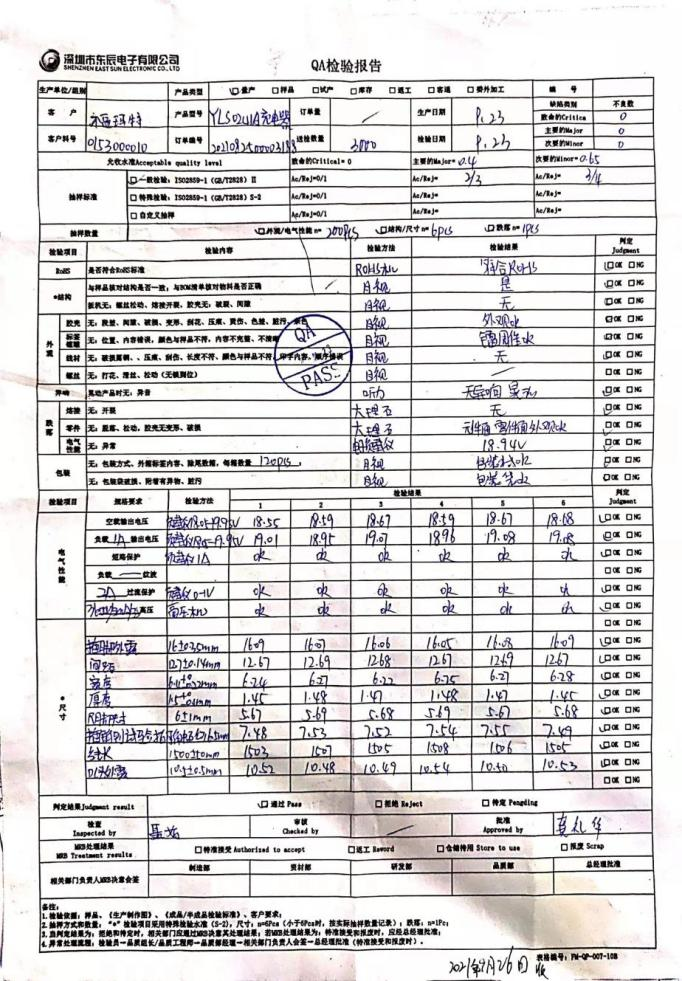 深圳市东辰电子有限公司
SHENZHEN EAST SUN ELECTRONIC CO., LTD
QA检验报告
生产单位/组别 产品类型 量产 样品 试产 库存 返工 客退 委外加工 编号
客户 产品型号 YLS0241A充电器 订单量 / 生产日期 9.23 缺陷类别 不良数
致命的Critica 0
客户料号 0153000010 订单编号 送检数量 3000 检验日期 9.23 主要的Major 0
次要的Minor 0
允收水准Acceptable quality level 致命的Critical= 0 主要的Major= 0.4 次要的Minor= 0.65
抽样标准 一般检验: ISO2859-1 (GB/T2828) II Ac/Rej=0/1 Ac/Rej= 2/3 Ac/Rej= 3/4
特殊检验: ISO2859-1 (GB/T2828) S-2 Ac/Rej=0/1 Ac/Rej= Ac/Rej=
自定义抽样 Ac/Rej=0/1 Ac/Rej= Ac/Rej=
抽样数量 外观/电气性能 n= 200PCS 结构/尺寸 n= 6PCS 跌落 n= 1PCS
检验项目 检验内容 检验方法 检验结果 判定 Judgment
RoHS 是否符合RoHS标准 ROHS 符合ROHS OK NG
*结构 与样品核对结构是否一致; 与BOM清单核对物料是否正确 目视 是 OK NG
扳机无: 螺丝松动、熔接开裂、胶壳无: 破裂、间隙 目视 无 OK NG
外观 胶壳 无: 段差、间隙、破损、变形、刮花、压痕、烫伤、色差、脏污、杂色 目视 外观ok OK NG
无: 位置、内容错误, 颜色与样品不符, 内容不完整、不清晰 目视 OK NG
线材 无: 破损露铜、压痕、刮伤、长度不符、颜色与样品不符、印字内容、顺序错误 目视 无 OK NG
螺丝 无: 打花、滑丝、松动(无锁到位) 目视 一 OK NG
QA
PASS
异响 晃动产品时无: 异音 听力 无异响 OK NG
跌落 熔接 无: 开裂 大理石 无 OK NG
零件 无: 脱落、松动, 胶壳无变形、破损 大理石 OK NG
电气性能 无: 异常 18.94V OK NG
包装 无: 包装方式、外箱标签内容、除尾数箱, 每箱数量 120PCS 目视 OK NG
无: 包装袋破损、附着有异物、脏污 目视 OK NG
检验项目 规格要求 检验方法 检验结果 判定 Judgment
1 2 3 4 5 6
电气性能 空载输出电压 18.55 18.59 18.67 18.59 18.67 18.68 OK NG
负载 1A 输出电压 19.01 18.95 19.07 18.96 19.08 19.08 OK NG
短路保护 1A ok ok ok ok ok ok OK NG
负载 一 纹波 OK NG
2A 过流保护 0-1V ok ok ok ok ok ok OK NG
高压 高压机 ok ok ok ok ok ok OK NG
OK NG
*尺寸 16±0.35mm 16.09 16.07 16.06 16.05 16.08 16.09 OK NG
间距 12.7±0.14mm 12.67 12.69 12.68 12.67 12.69 12.67 OK NG
宽度 6.24 6.27 6.22 6.25 6.27 6.28 OK NG
厚度 1.45 1.48 1.47 1.48 1.47 1.45 OK NG
6±1mm 5.67 5.69 5.68 5.69 5.67 5.68 OK NG
7.48 7.53 7.52 7.54 7.55 7.49 OK NG
线长 1500±50mm 1503 1507 1505 1508 1506 1505 OK NG
10.5±0.5mm 10.52 10.48 10.49 10.54 10.50 10.53 OK NG
OK NG
判定结果Judgment result 通过 Pass 拒绝 Reject 待定 Pengding
检查 Inspected by 审核 Checked by 批准 Approved by
MRB处理结果 MRB Treatment results 特准接受 Authorized to accept 返工 Reword 仓储待用 Store to use 报废 Scrap
相关部门负责人MRB决意会签 制造部 资材部 研发部 品质部 总经理批准
备注:
1. 检验依据: 样品、《生产制作图》、《成品/半成品检验标准》、客户要求;
2. 抽样方式和数量: "*" 检验项目采用特殊检验水准 (S-2), 尺寸: n=6Pcs (小于6Pcs时, 按实际抽样数量记录); 跌落: n=1Pc;
3. 当判定结果为: 拒绝和待定时, 相关部门应通过MRB决意其处理结果; 若MRB处理结果为: 特准接受和报废时, 应经总经理批准;
4. 异常处理流程: 检验员→品质组长/品质工程师→品质部经理→相关部门负责人会签→总经理批准 (特准接受和报废时)。
表格编号: FM-QP-007-10B
2021年9月26日 收